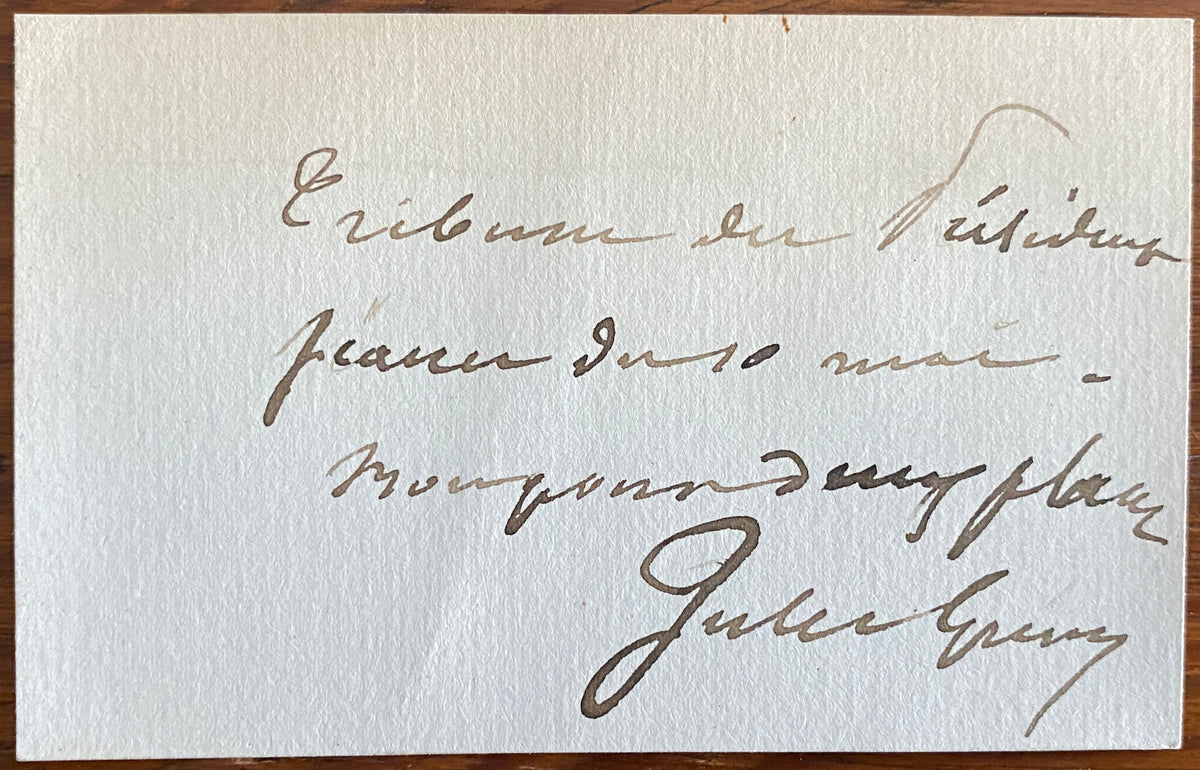 Tribune du Président
séance du 10 mai.
Bon pour deux places
Jules Grévy